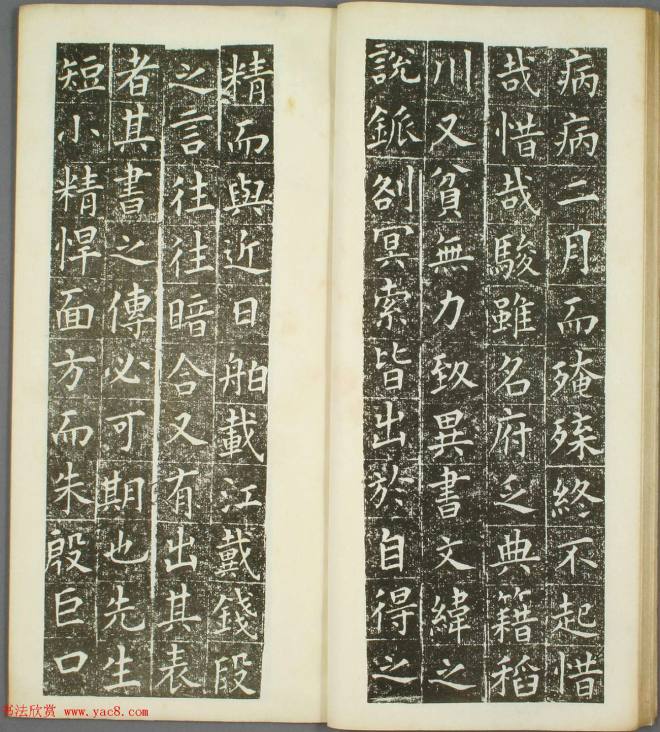 病病二月而殗殜終不起惜
哉惜哉駿雖名府乏典籍稻
川又貧無力致異書文緯之
說冥索皆出於自得之
精而與近日舶載江戴錢段
之言往往暗合又有出其表
者其書之傳必可期也先生
短小精悍面方而朱殷巨口
书法欣赏 www.yac8.com